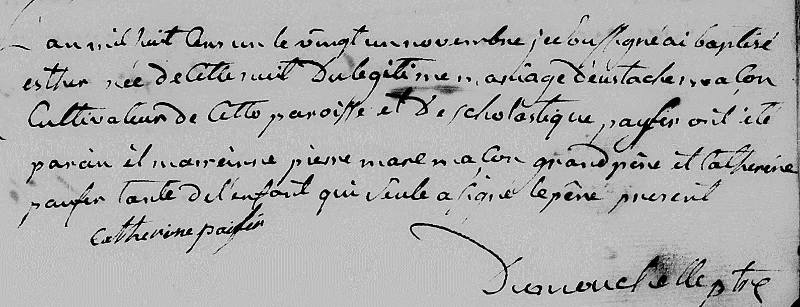 L'an mil huit Cens un le vingt un novembre je soussigné ai baptisé
esther née de Cette nuit Du legitime mariage d'eustache maçon
Cultivateur de Cette paroisse et De scholastique payfer ont été
parain et marrainne pierre marc maçon grand père et Catherine
payfer tante de l'enfant qui seule a signé le père present
Catherine paifer
Dumouchelle ptre